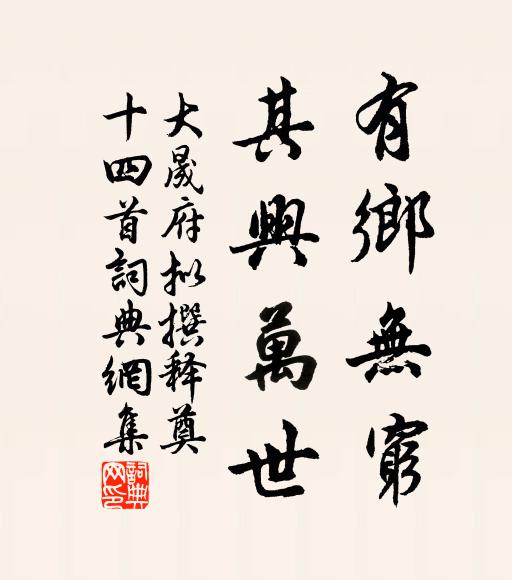 有鄉無窮
其興萬世
大晟府拟撰释奠
十四首詞典網集
詞典网印